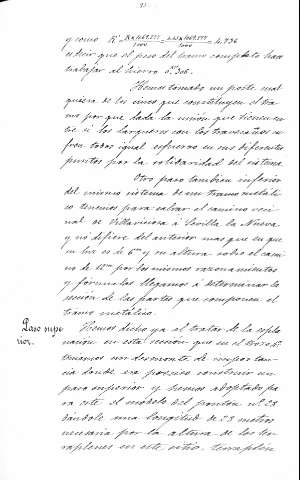 y como R' =
es decir que el peso del tramo completo hace
trabajar al hierro 0.
Hemos tomado un poste cual
quiera de los cinco que constituyen el tra
mo por que dada la union que tienen en
tre si los largueros con los transversales su
fren todos igual esfuerzo en sus diferentes
puntos por la solidaridad del sistema
Otro paso tambien inferior
del mismo sistema de un tramo metáli
co tenemos para salvar el camino veci
nal de Villaviciosa á Sevilla la Nueva
y no difiere del anterior mas que en que
su luz es de 6 m y su altura sobre el cami
no de por los mismos razonamientos
y fórmulas llegamos á determinar la
sección de las partes que componen el
tramo metálico.
Paso supe
rior.
Hemos dicho ya al tratar de la expla
nación en esta sección que en el trozo
teniamos un desmonte de importan
cia donde era preciso construir un
paso superior y hemos adoptado pa
ra este el modelo del ponton nº 23
dándole una longitud de 23 metros
necesaria por la altura de los ter
raplenes en este sitio,